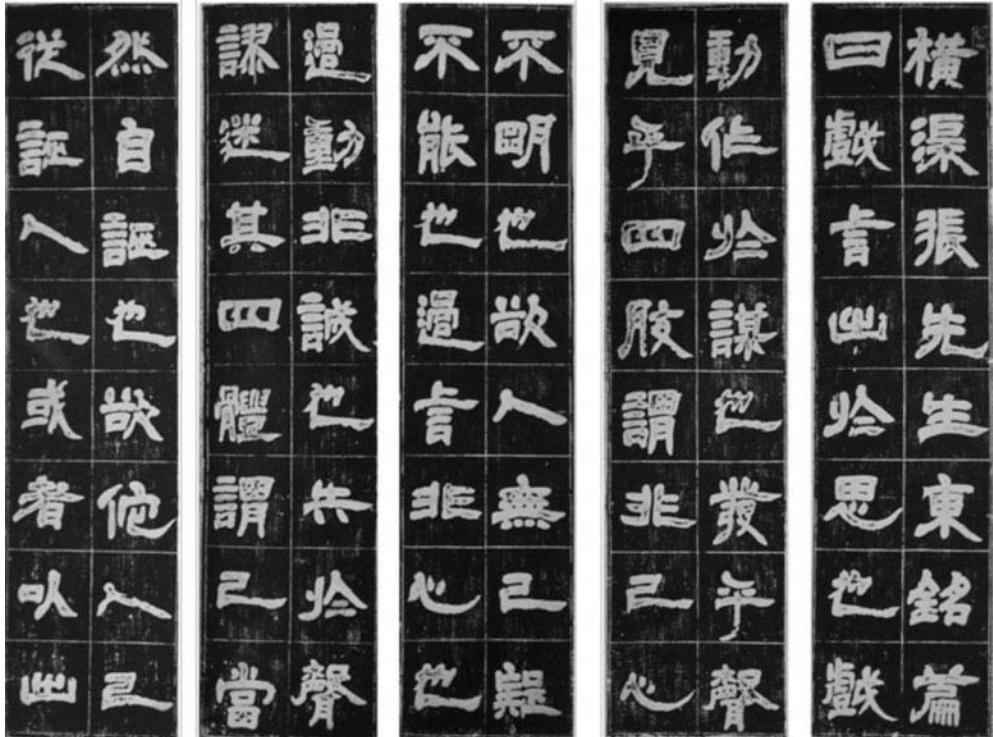 橫渠張先生東銘篇
曰戲言出於思也戲
動作於謀也發乎聲
見乎四肢謂非己心
不明也欲人無己疑
不能也過言非心也
過動非誠也失於聲
謬迷其四體謂己當
然自誣也欲他人己
從誣人也或者以出